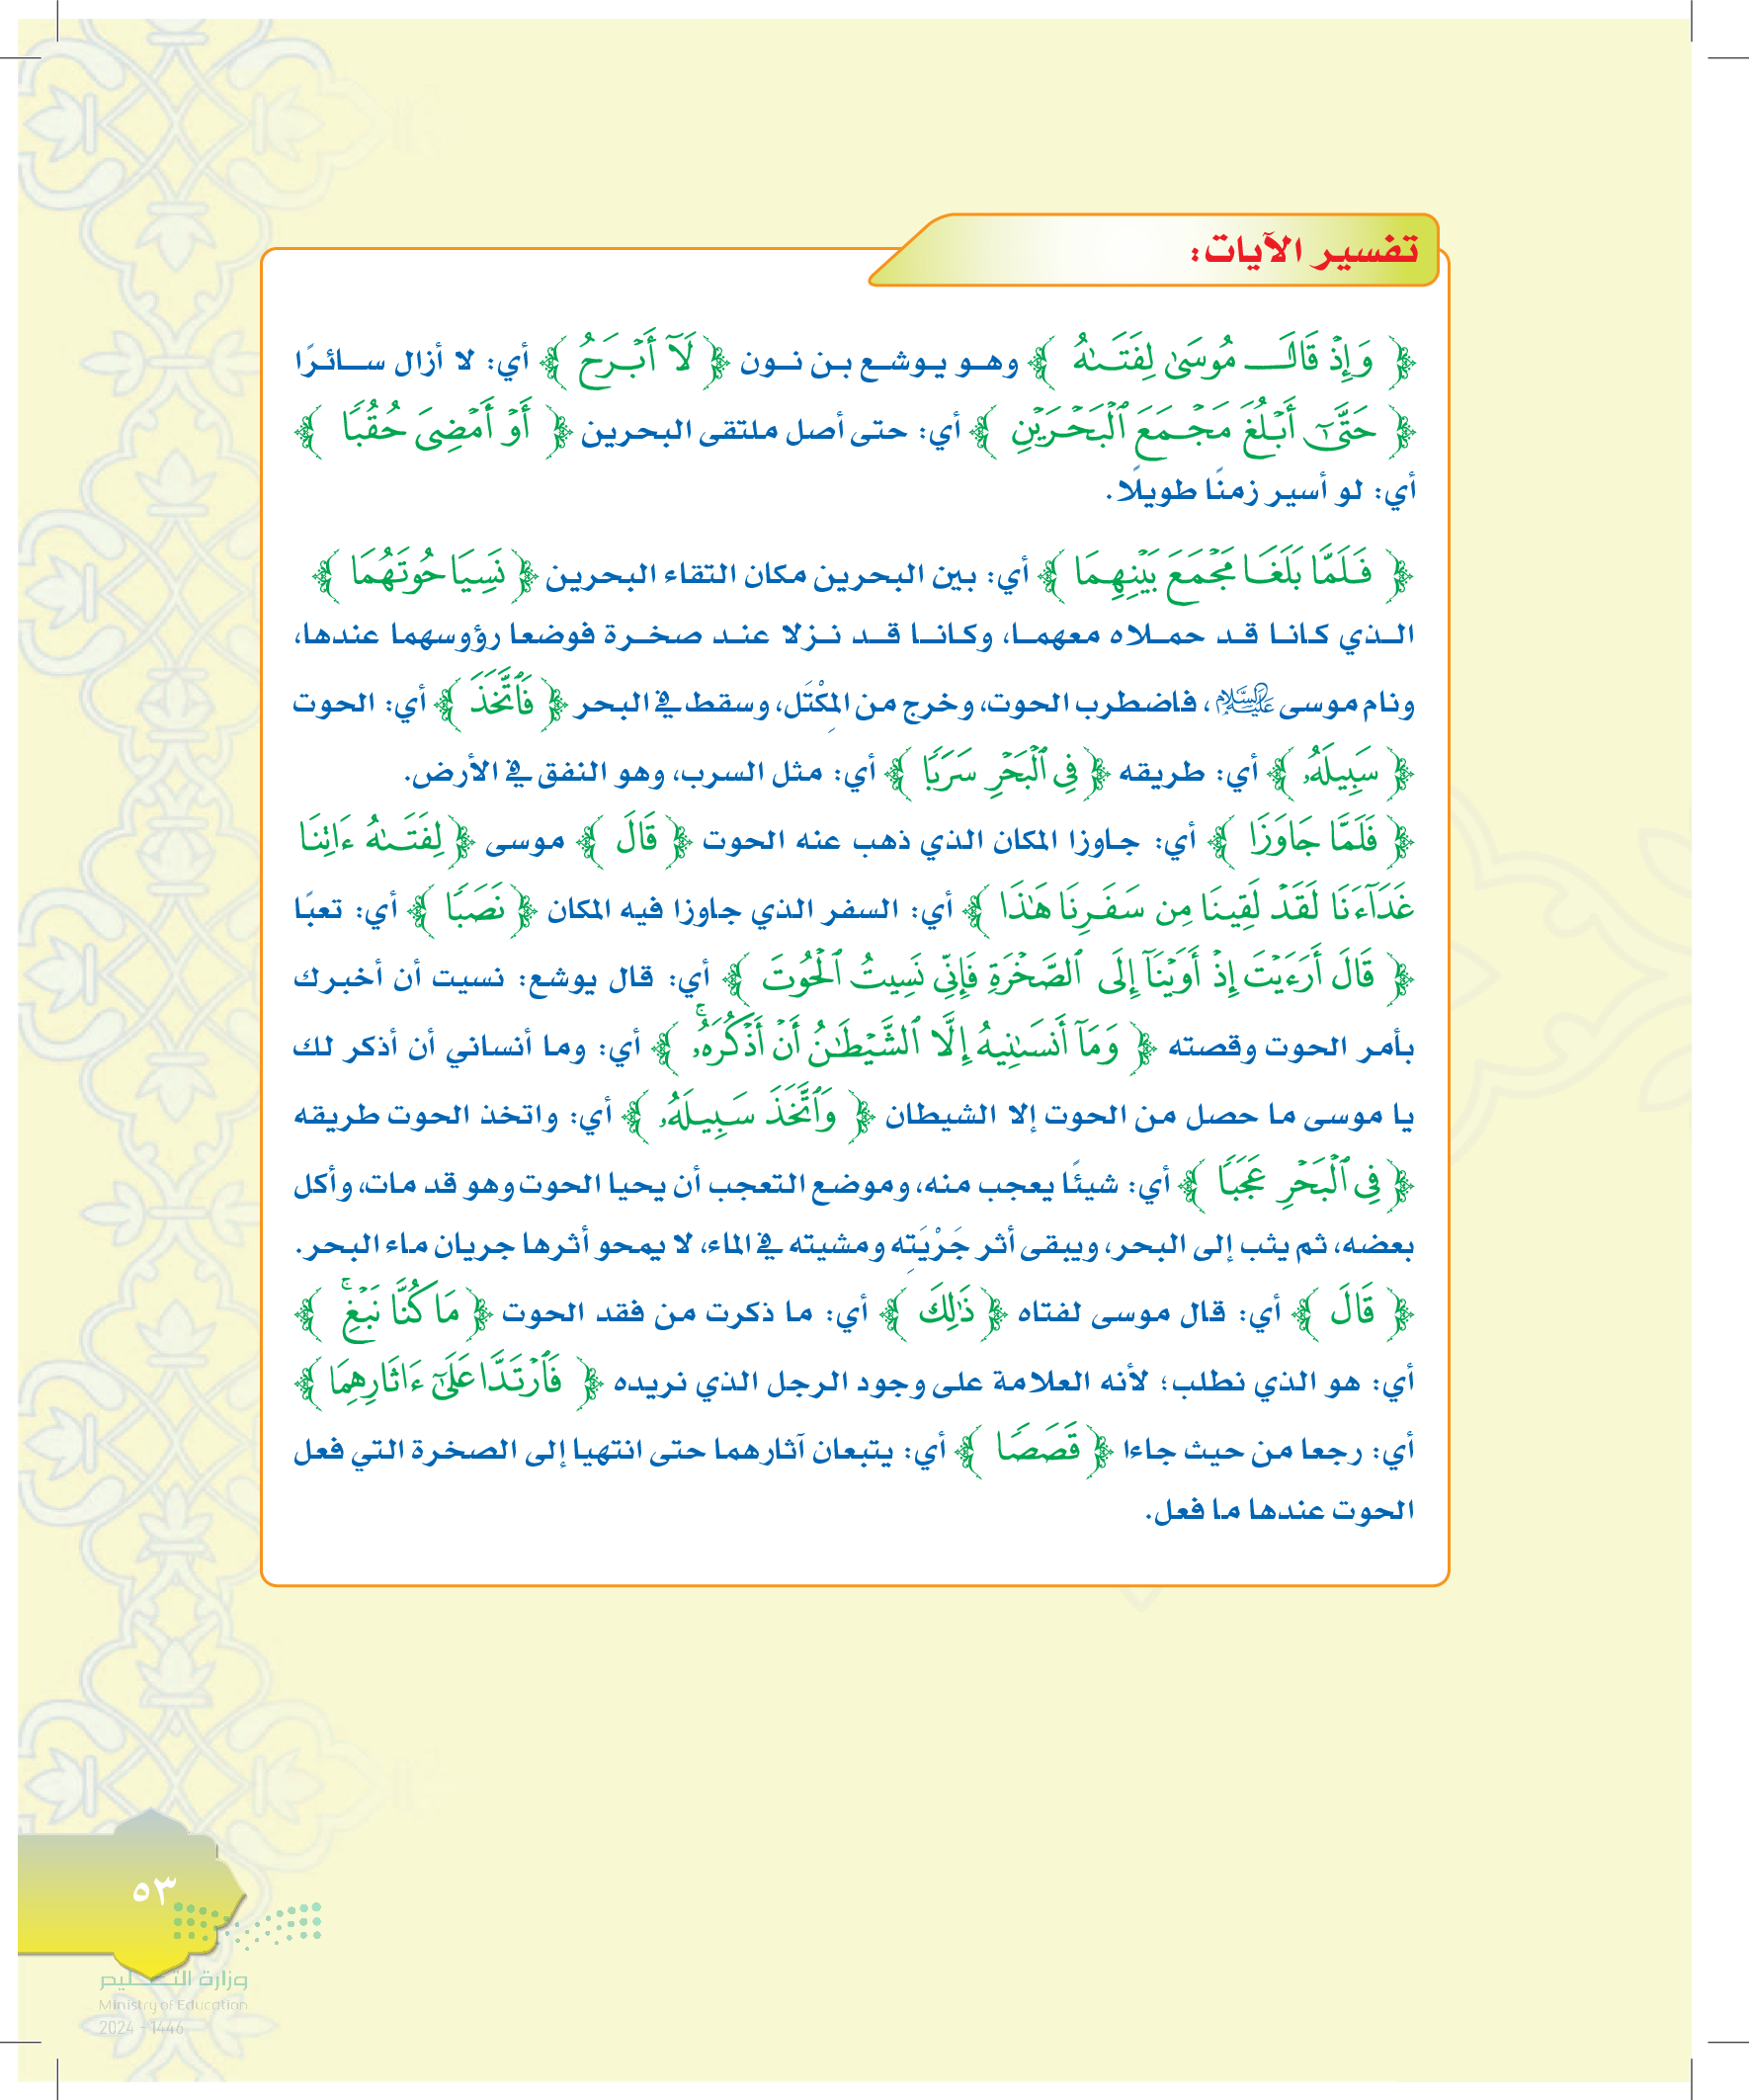 تفسير الآيات:
﴿ وَإِذْ قَالَ مُوسَىٰ لِفَتَىٰهُ ﴾ وهـو يـوشـع بـن نـون ﴿ لَآ أَبْرَحُ ﴾ أي: لا أزال سـائـرًا
﴿ حَتَّىٰٓ أَبْلُغَ مَجْمَعَ ٱلْبَحْرَيْنِ ﴾ أي: حتى أصل ملتقى البحرين ﴿ أَوْ أَمْضِيَ حُقُبًا ﴾
أي: لو أسير زمنًا طويلًا.
﴿ فَلَمَّا بَلَغَا مَجْمَعَ بَيْنِهِمَا ﴾ أي: بين البحرين مكان التقاء البحرين ﴿ نَسِيَا حُوتَهُمَا ﴾
الـذي كـانـا قـد حمـلاه معهمـا، وكـانـا قـد نـزلا عنـد صخـرة فوضعا رؤوسهما عندها،
ونام موسى عليه السلام، فاضطرب الحوت، وخرج من المِكْتَل، وسقط في البحر ﴿ فَٱتَّخَذَ ﴾ أي: الحوت
﴿ سَبِيلَهُۥ ﴾ أي: طريقه ﴿ فِي ٱلْبَحْرِ سَرَبًا ﴾ أي: مثل السرب، وهو النفق في الأرض.
﴿ فَلَمَّا جَاوَزَا ﴾ أي: جـاوزا المكان الذي ذهب عنه الحوت ﴿ قَالَ ﴾ موسى ﴿ لِفَتَىٰهُ ءَاتِنَا
غَدَآءَنَا لَقَدْ لَقِينَا مِن سَفَرِنَا هَٰذَا ﴾ أي: السفر الذي جاوزا فيه المكان ﴿ نَصَبًا ﴾ أي: تعبًا
﴿ قَالَ أَرَءَيْتَ إِذْ أَوَيْنَآ إِلَى ٱلصَّخْرَةِ فَإِنِّي نَسِيتُ ٱلْحُوتَ ﴾ أي: قال يوشع: نسيت أن أخبرك
بأمر الحوت وقصته ﴿ وَمَآ أَنسَىٰنِيهُ إِلَّا ٱلشَّيْطَٰنُ أَنْ أَذْكُرَهُۥۚ ﴾ أي: وما أنساني أن أذكر لك
يا موسى ما حصل من الحوت إلا الشيطان ﴿ وَٱتَّخَذَ سَبِيلَهُۥ ﴾ أي: واتخذ الحوت طريقه
﴿ فِي ٱلْبَحْرِ عَجَبًا ﴾ أي: شيئًا يعجب منه، وموضع التعجب أن يحيا الحوت وهو قد مات، وأكل
بعضه، ثم يثب إلى البحر، ويبقى أثر جَرْيَتِه ومشيته في الماء، لا يمحو أثرها جريان ماء البحر.
﴿ قَالَ ﴾ أي: قال موسى لفتاه ﴿ ذَٰلِكَ ﴾ أي: ما ذكرت من فقد الحوت ﴿ مَا كُنَّا نَبْغِۚ ﴾
أي: هو الذي نطلب؛ لأنه العلامة على وجود الرجل الذي نريده ﴿ فَٱرْتَدَّا عَلَىٰٓ ءَاثَارِهِمَا ﴾
أي: رجعا من حيث جاءا ﴿ قَصَصًا ﴾ أي: يتبعان آثارهما حتى انتهيا إلى الصخرة التي فعل
الحوت عندها ما فعل.
٥٣
وزارة التعليم
Ministry of Education
2024 - 1446